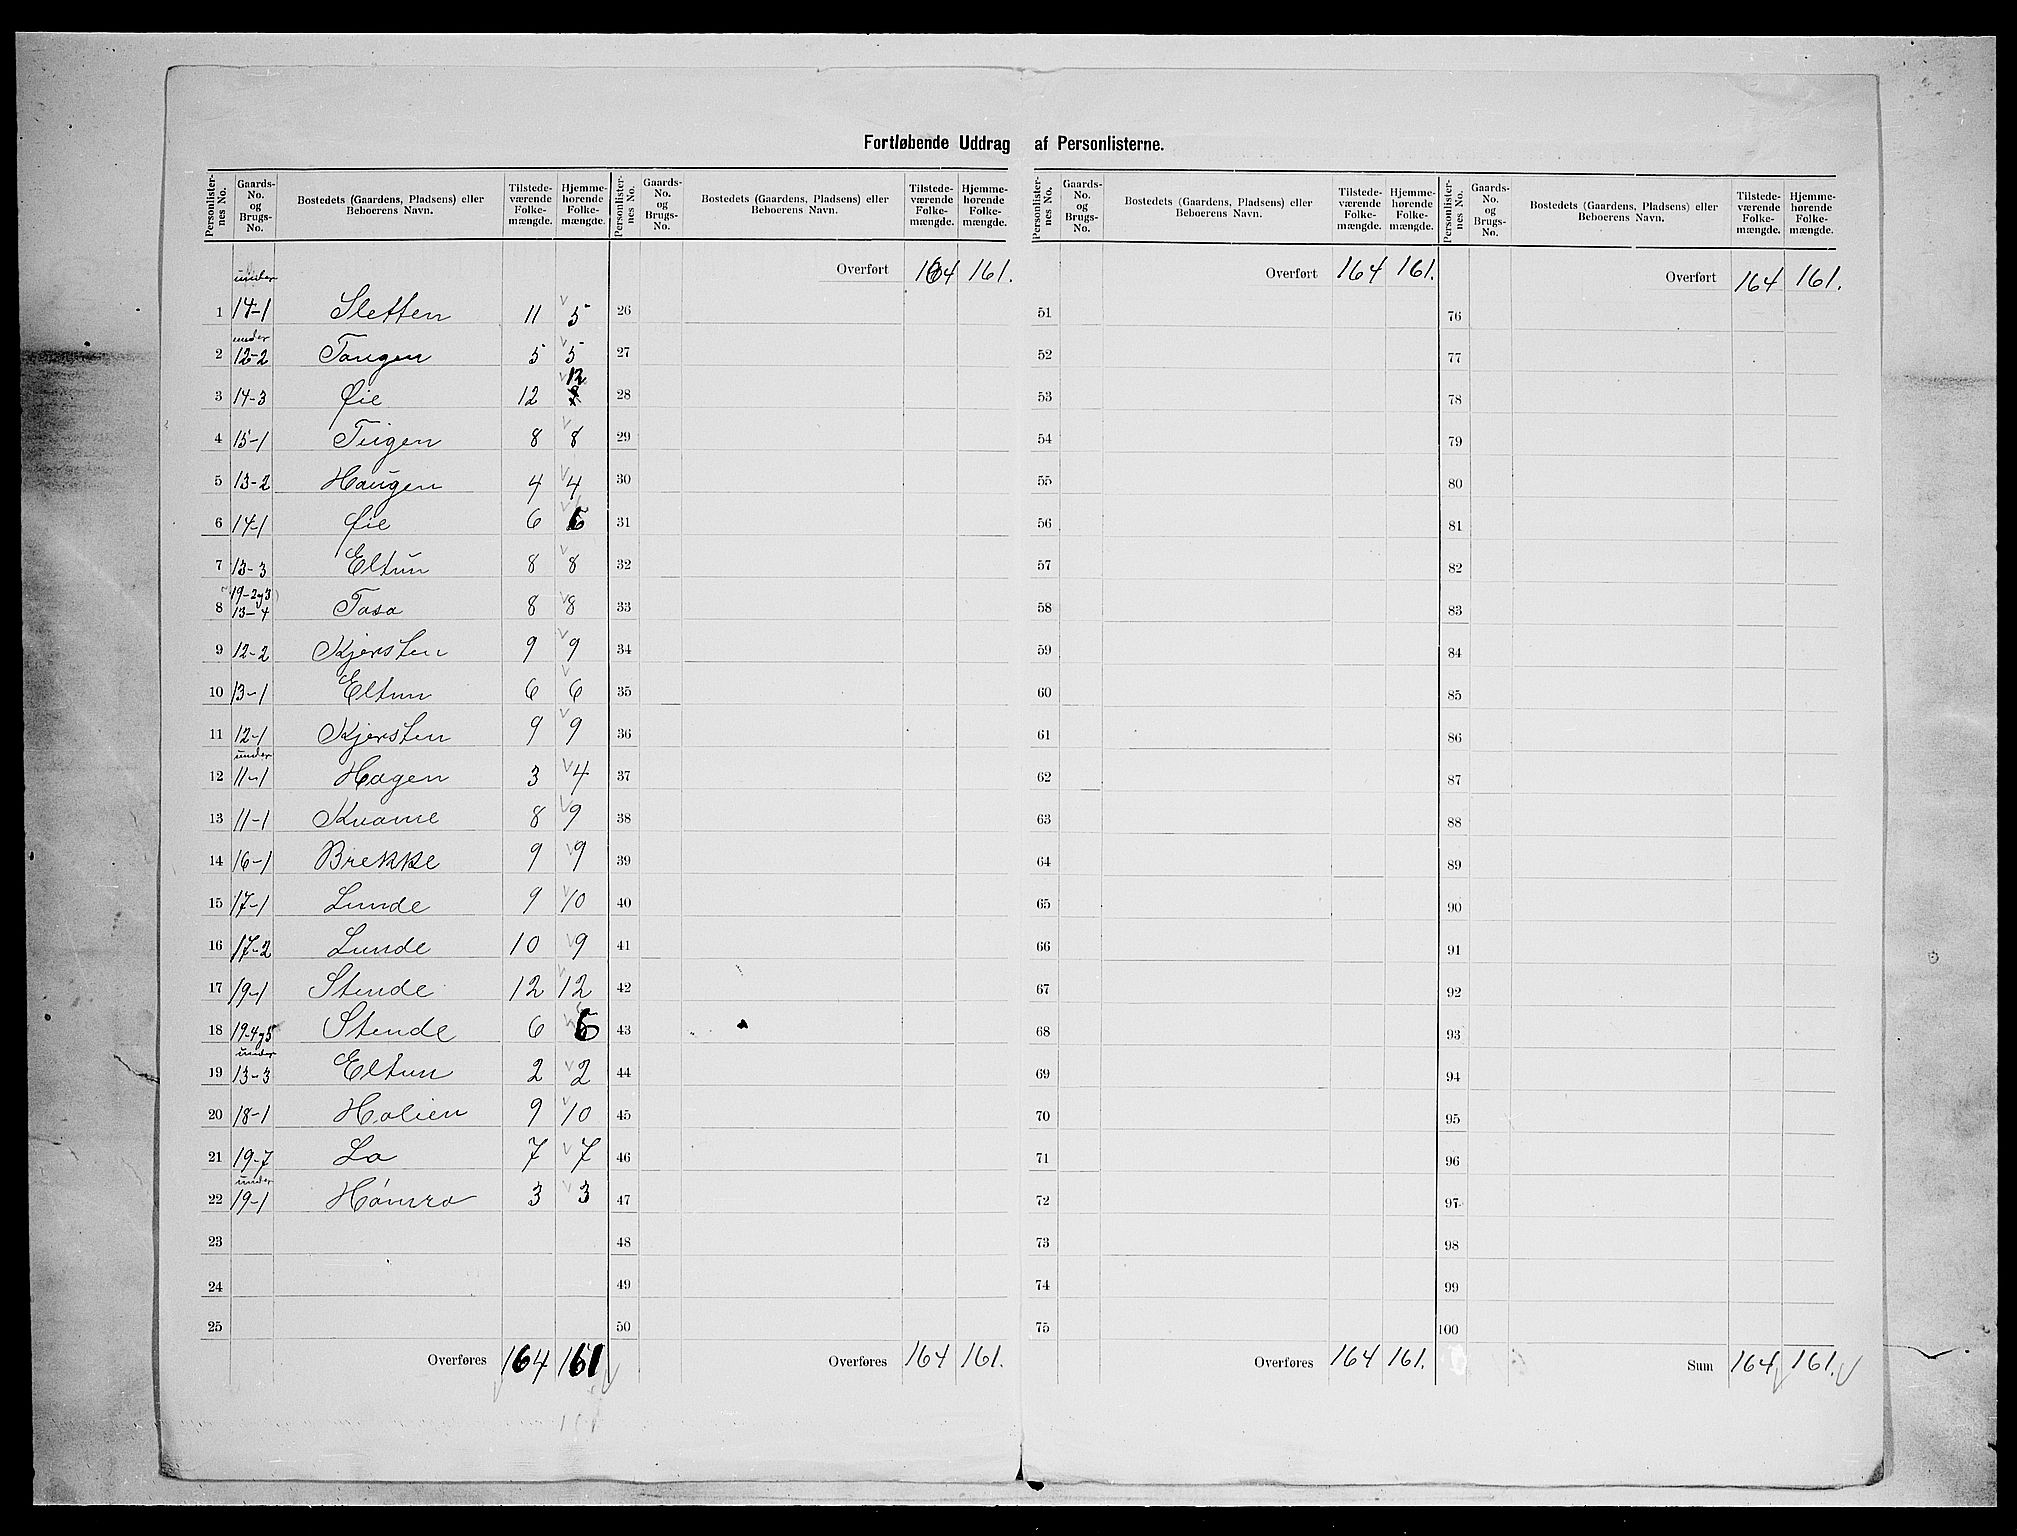 Fortløbende Uddrag af Personlisterne.
Personlister-nes No. | Gaards-No. og Brugs-No. | Bostedets (Gaardens, Pladsens) eller Beboerens Navn. | Tilstede-værende Folke-mængde. | Hjemme-hørende Folke-mængde.
1 | under 14-1 | Sletten | 11 | 5
2 | under 12-2 | Tangen | 5 | 5
3 | 14-3 | Øie | 12 | 12
4 | 15-1 | Teigen | 8 | 8
5 | 13-2 | Haugen | 4 | 4
6 | 14-1 | Øie | 6 | 6
7 | 13-3 | Eltun | 8 | 8
8 | 19-2 og 3 13-4 | Tasa | 8 | 8
9 | 12-2 | Kjersten | 9 | 9
10 | 13-1 | Eltun | 6 | 6
11 | 12-1 | Kjersten | 9 | 9
12 | under 11-1 | Hagen | 3 | 4
13 | 11-1 | Kvame | 8 | 9
14 | 16-1 | Brekke | 9 | 9
15 | 17-1 | Lunde | 9 | 10
16 | 17-2 | Lunde | 10 | 9
17 | 19-1 | Stende | 12 | 12
18 | 19-4 og 5 | Stende | 6 | 6
19 | under 13-3 | Eltun | 2 | 2
20 | 18-1 | Holien | 9 | 10
21 | 19-7 | Lo | 7 | 7
22 | under 19-1 | Hømro | 3 | 3
23
24
25
Overføres 164 161
Personlister-nes No. | Gaards-No. og Brugs-No. | Bostedets (Gaardens, Pladsens) eller Beboerens Navn. | Tilstede-værende Folke-mængde. | Hjemme-hørende Folke-mængde.
Overført 164 161.
26
27
28
29
30
31
32
33
34
35
36
37
38
39
40
41
42
43
44
45
46
47
48
49
50
Overføres 164 161.
Personlister-nes No. | Gaards-No. og Brugs-No. | Bostedets (Gaardens, Pladsens) eller Beboerens Navn. | Tilstede-værende Folke-mængde. | Hjemme-hørende Folke-mængde.
Overført 164 161.
51
52
53
54
55
56
57
58
59
60
61
62
63
64
65
66
67
68
69
70
71
72
73
74
75
Overføres 164 161.
Personlister-nes No. | Gaards-No. og Brugs-No. | Bostedets (Gaardens, Pladsens) eller Beboerens Navn. | Tilstede-værende Folke-mængde. | Hjemme-hørende Folke-mængde.
Overført 164 161.
76
77
78
79
80
81
82
83
84
85
86
87
88
89
90
91
92
93
94
95
96
97
98
99
100
Sum 164 161.